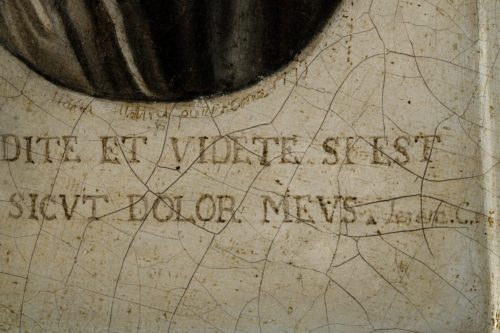 DITE ET VIDETE SI EST
SICVT DOLOR MEVS